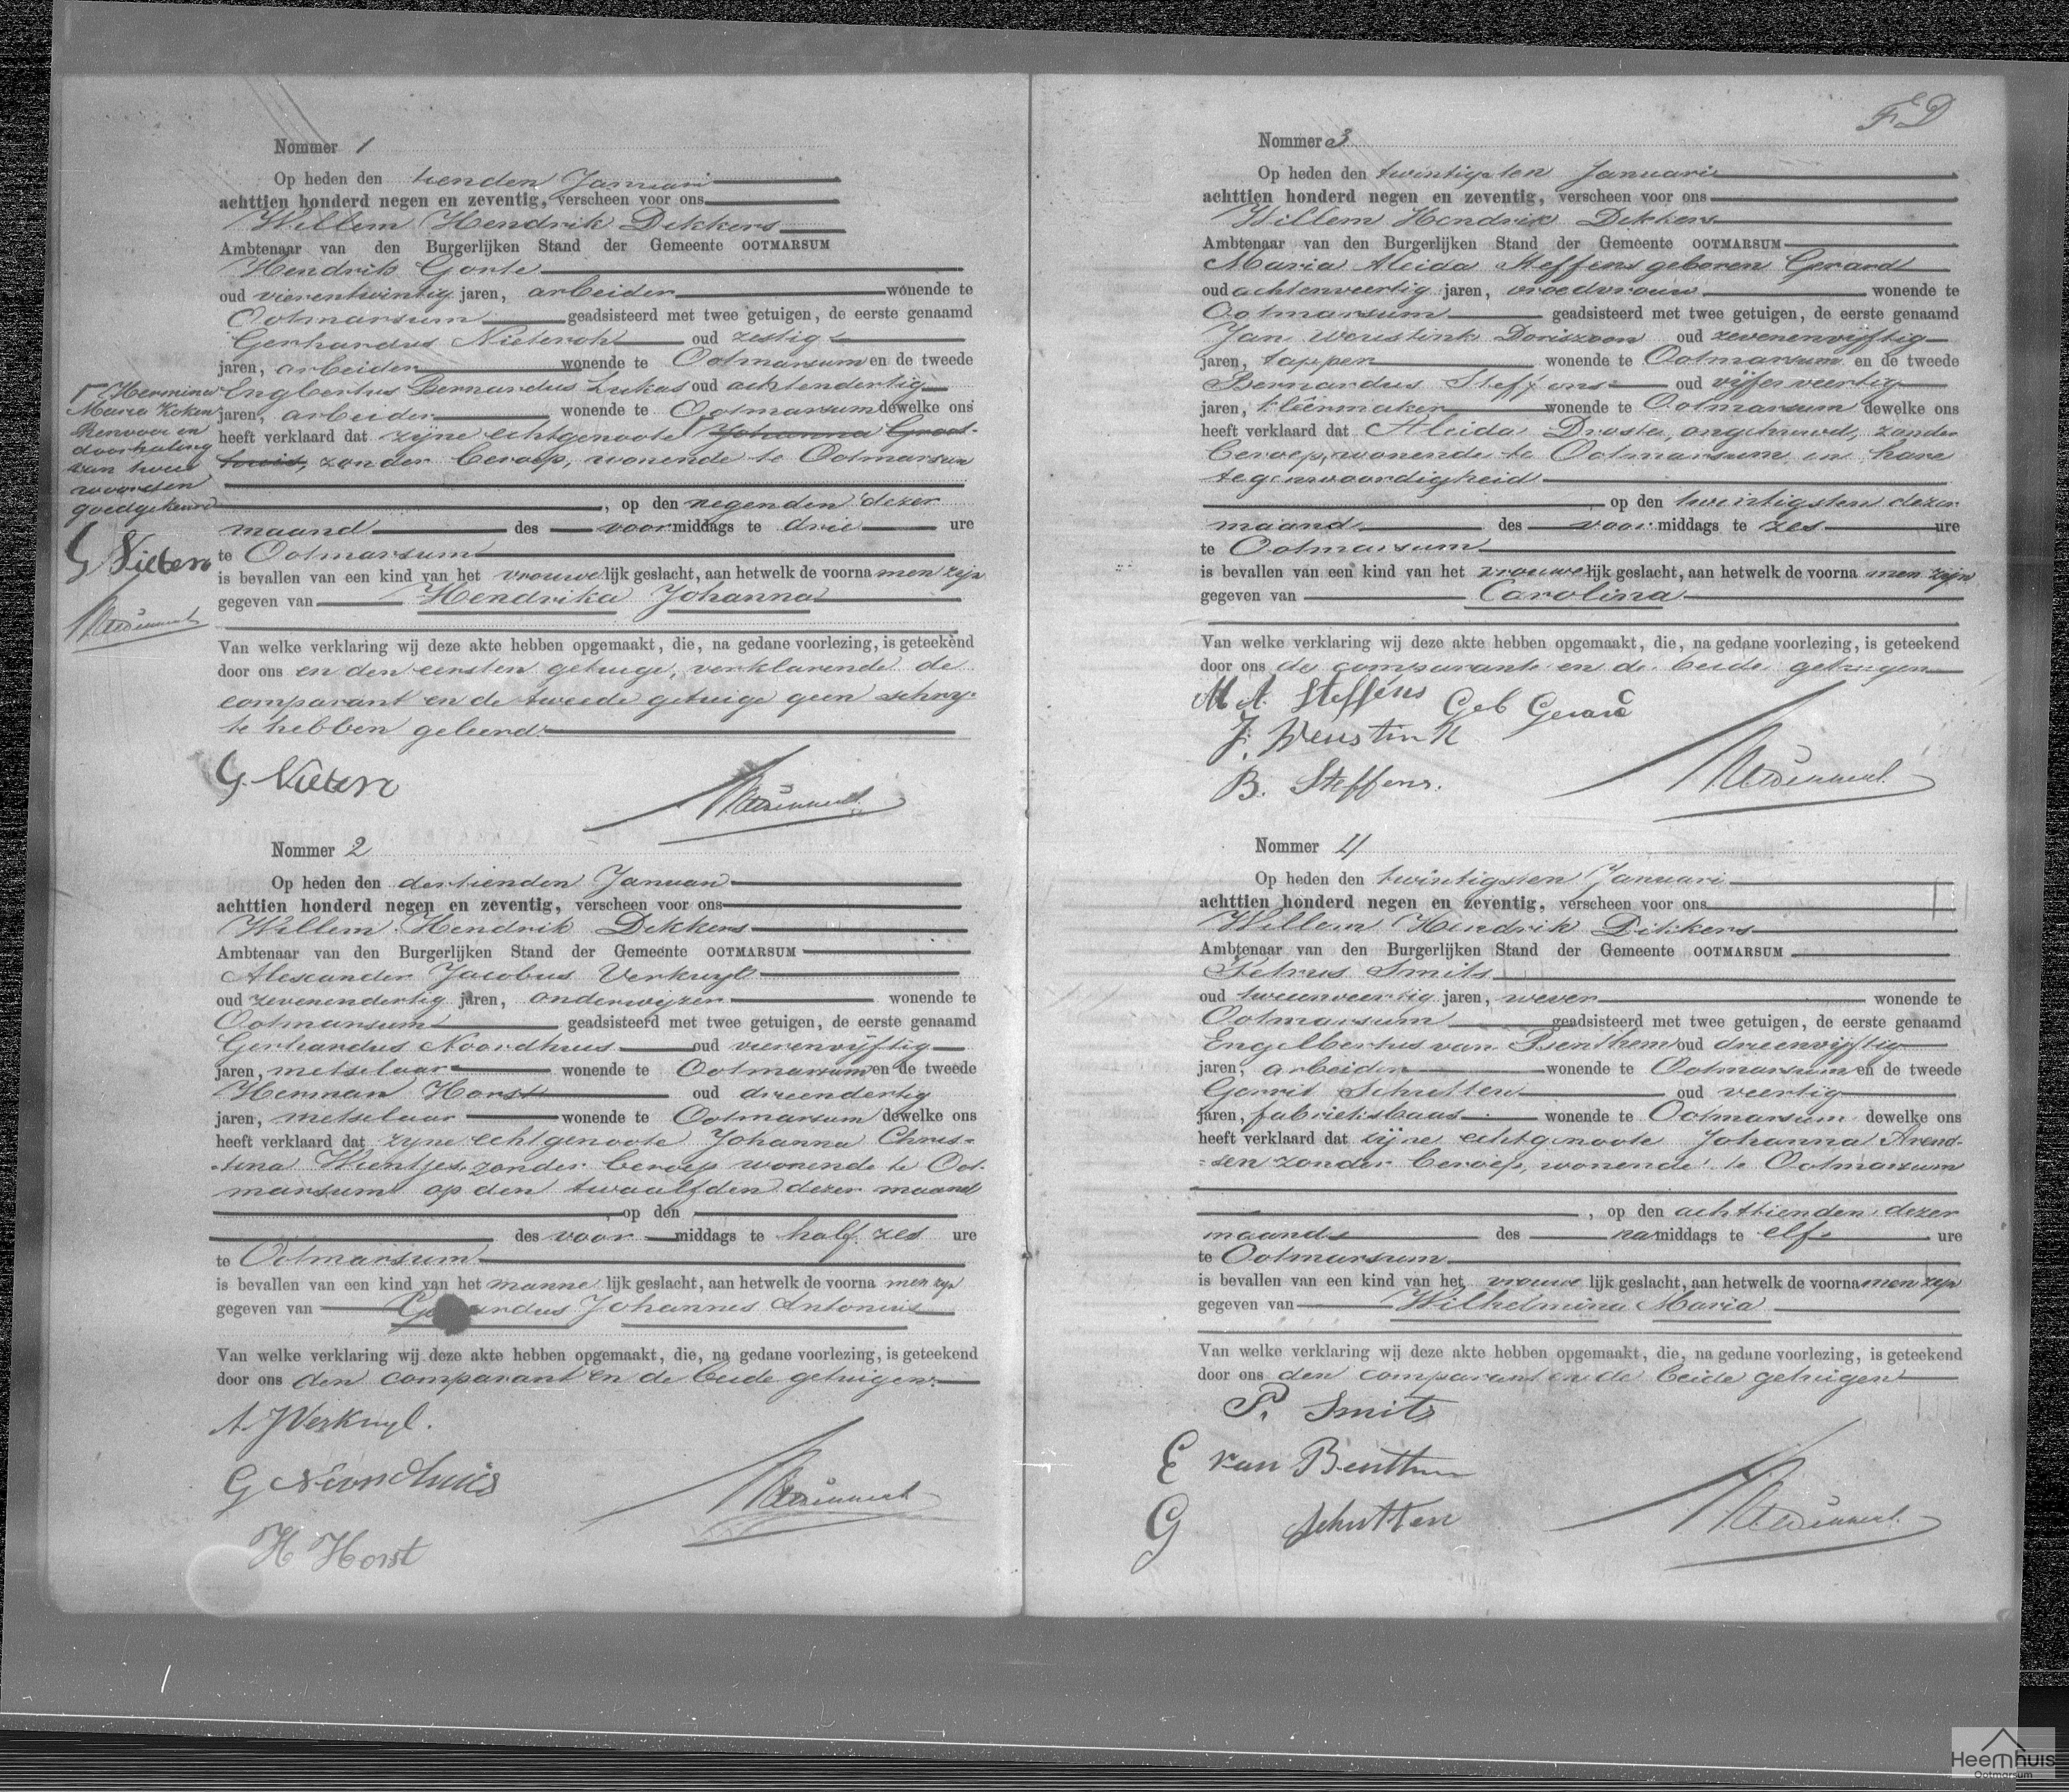 Nommer 1
Op heden den tienden Januari
achttien honderd negen en zeventig, verscheen voor ons
Willem Hendrik Dekkers
Ambtenaar van den Burgerlijken Stand der Gemeente OOTMARSUM
Hendrik Gorte
oud vierentwintig jaren, arbeider wonende te
Ootmarsum geadsisteerd met twee getuigen, de eerste genaamd
Gerhardus oud zestig
jaren, arbeider wonende te Ootmarsum en de tweede
Engbertus Bernardus Lukas oud achtendertig
jaren, arbeider wonende te Ootmarsum dewelke ons
heeft verklaard dat zijne echtgenoote Johanna Groot-
zonder beroep, wonende te Ootmarsum
, op den negenden dezer
maand des voormiddags te drie ure
te Ootmarsum
is bevallen van een kind van het vrouwelijk geslacht, aan hetwelk de voornamen zijn
gegeven van Hendrika Johanna
Van welke verklaring wij deze akte hebben opgemaakt, die, na gedane voorlezing, is geteekend
door ons en den eersten getuige, verklarende de
comparant en de tweede getuige geen schry:
te hebben geleerd
G. Nieten
Hermina
Maria Koken
Renvooi en
doorhaling
van twee
woorden
goedgekeurd
G Nieten
Nommer 2
Op heden den dertienden Januari
achttien honderd negen en zeventig, verscheen voor ons
Willem Hendrik Dekkers
Ambtenaar van den Burgerlijken Stand der Gemeente OOTMARSUM
Alexander Jacobus Verkuyl
oud zevenendertig jaren, onderwijzer wonende te
Ootmarsum geadsisteerd met twee getuigen, de eerste genaamd
Gerhardus Noordhuis oud vierenvijftig
jaren, metselaar wonende te Ootmarsum en de tweede
Herman Horst oud drieendertig
jaren, metselaar wonende te Ootmarsum dewelke ons
heeft verklaard dat zyne echtgenoote Johanna Chris=
=tina Wientjes, zonder beroep wonende te Oot-
marsum op den twaalfden dezer maand
, op den
des voormiddags te half zes ure
te Ootmarsum
is bevallen van een kind van het mannelijk geslacht, aan hetwelk de voornamen zijn
gegeven van Johannes Antonius
Van welke verklaring wij deze akte hebben opgemaakt, die, na gedane voorlezing, is geteekend
door ons den comparant en de beide getuigen.
A. J Verkuyl.
G Noordhuis
H Horst
FD
Nommer 3
Op heden den twintigsten Januari
achttien honderd negen en zeventig, verscheen voor ons
Willem Hendrik Dekkers
Ambtenaar van den Burgerlijken Stand der Gemeente OOTMARSUM
Maria Aleida Steffens geboren Gerard
oud achtenveertig jaren, vroedvrouw wonende te
Ootmarsum geadsisteerd met twee getuigen, de eerste genaamd
Jan Weustink Doriszoon oud zevenenvijftig
jaren, tapper wonende te Ootmarsum en de tweede
Bernardus Steffens oud vijfenveertig
jaren, kleêrmaker wonende te Ootmarsum dewelke ons
heeft verklaard dat Aleida Droste, ongehuwd, zonder
beroep, wonende te Ootmarsum in hare
tegenwoordigheid
op den twintigsten dezer
maand des voormiddags te zes ure
te Ootmarsum
is bevallen van een kind van het vrouwelijk geslacht, aan hetwelk de voornamen zijn
gegeven van Carolina
Van welke verklaring wij deze akte hebben opgemaakt, die, na gedane voorlezing, is geteekend
door ons de comparante en de beide getuigen
M A. Steffens Geb Gerard
J. Weustink
B. Steffens.
Nommer 4
Op heden den twintigsten Januari
achttien honderd negen en zeventig, verscheen voor ons
Willem Hendrik Dekkers
Ambtenaar van den Burgerlijken Stand der Gemeente OOTMARSUM
Petrus Smits
oud tweeenveertig jaren, wever wonende te
Ootmarsum geadsisteerd met twee getuigen, de eerste genaamd
Engelbertus van Benthem oud drieenvijftig
jaren, arbeider wonende te Ootmarsum en de tweede
Gerrit Schutten oud veertig
jaren, fabrieksbaas wonende te Ootmarsum dewelke ons
heeft verklaard dat zijne echtgenoote Johanna Arend-
=sen zonder beroep, wonende te Ootmarsum
, op den achttienden dezer
maand des namiddags te elf ure
te Ootmarsum
is bevallen van een kind van het vrouwelijk geslacht, aan hetwelk de voornamen zijn
gegeven van Wilhelmina Maria
Van welke verklaring wij deze akte hebben opgemaakt, die, na gedane voorlezing, is geteekend
door ons den comparant en de beide getuigen
P. Smits
E van Benthem
G Schutten
Heemhuis
Ootmarsum